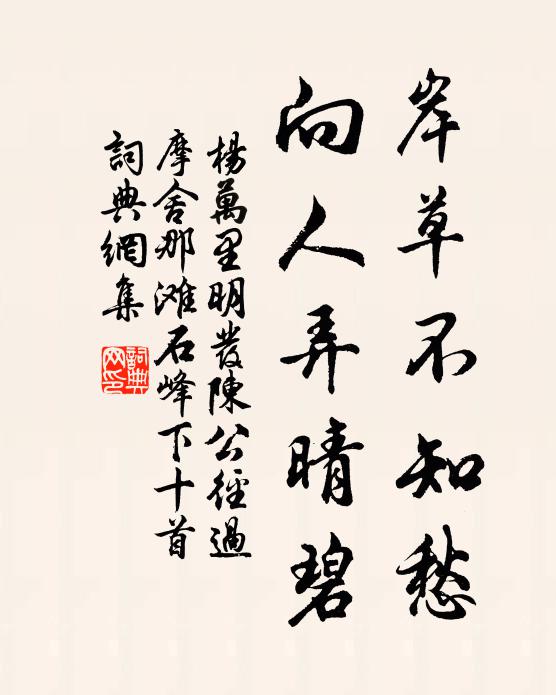 岸草不知愁
向人弄晴碧
楊萬里明發陳公徑過
摩舍那滩石峰下十首
詞典網集
詞典網印